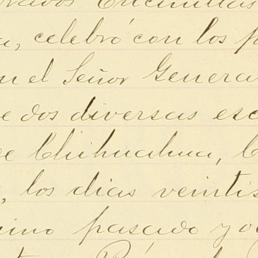 Encinillas
a, celebró con los p
n el Señor Genera
e dos diversas esc
e Chihuahua, C
, los dias veintis
imo pasado y o